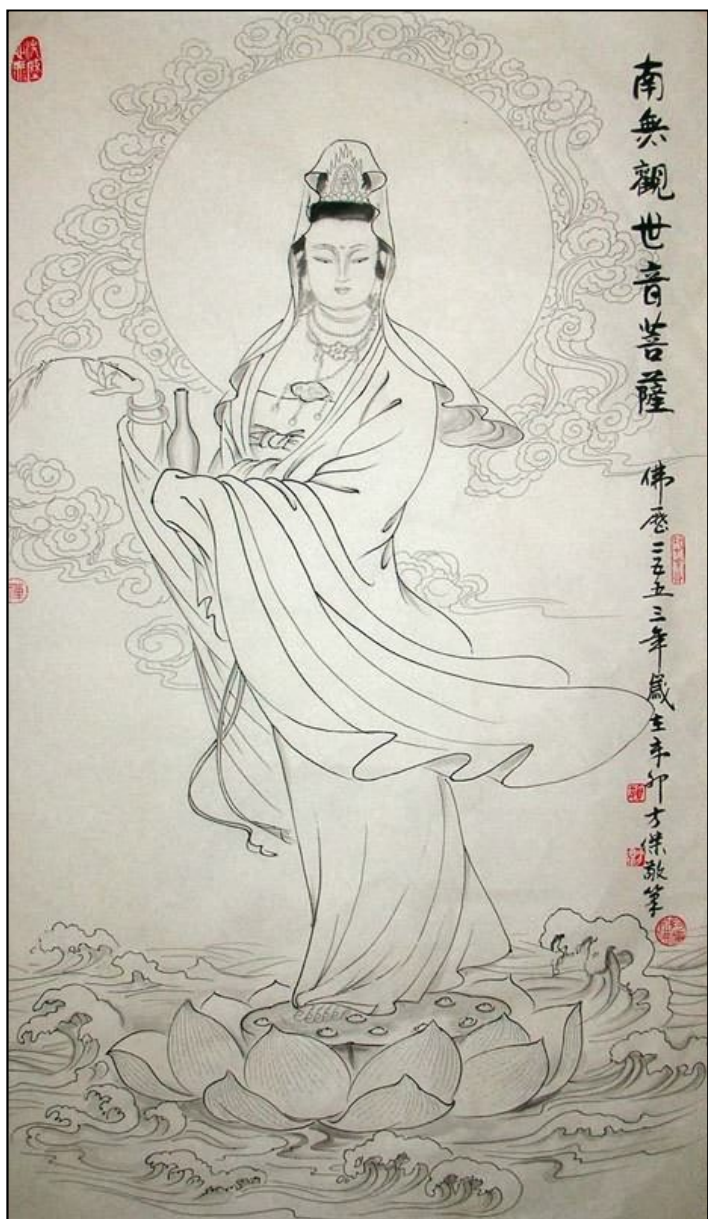 南無觀世音菩薩
佛歷二五五三年歲在辛卯方傑敬筆